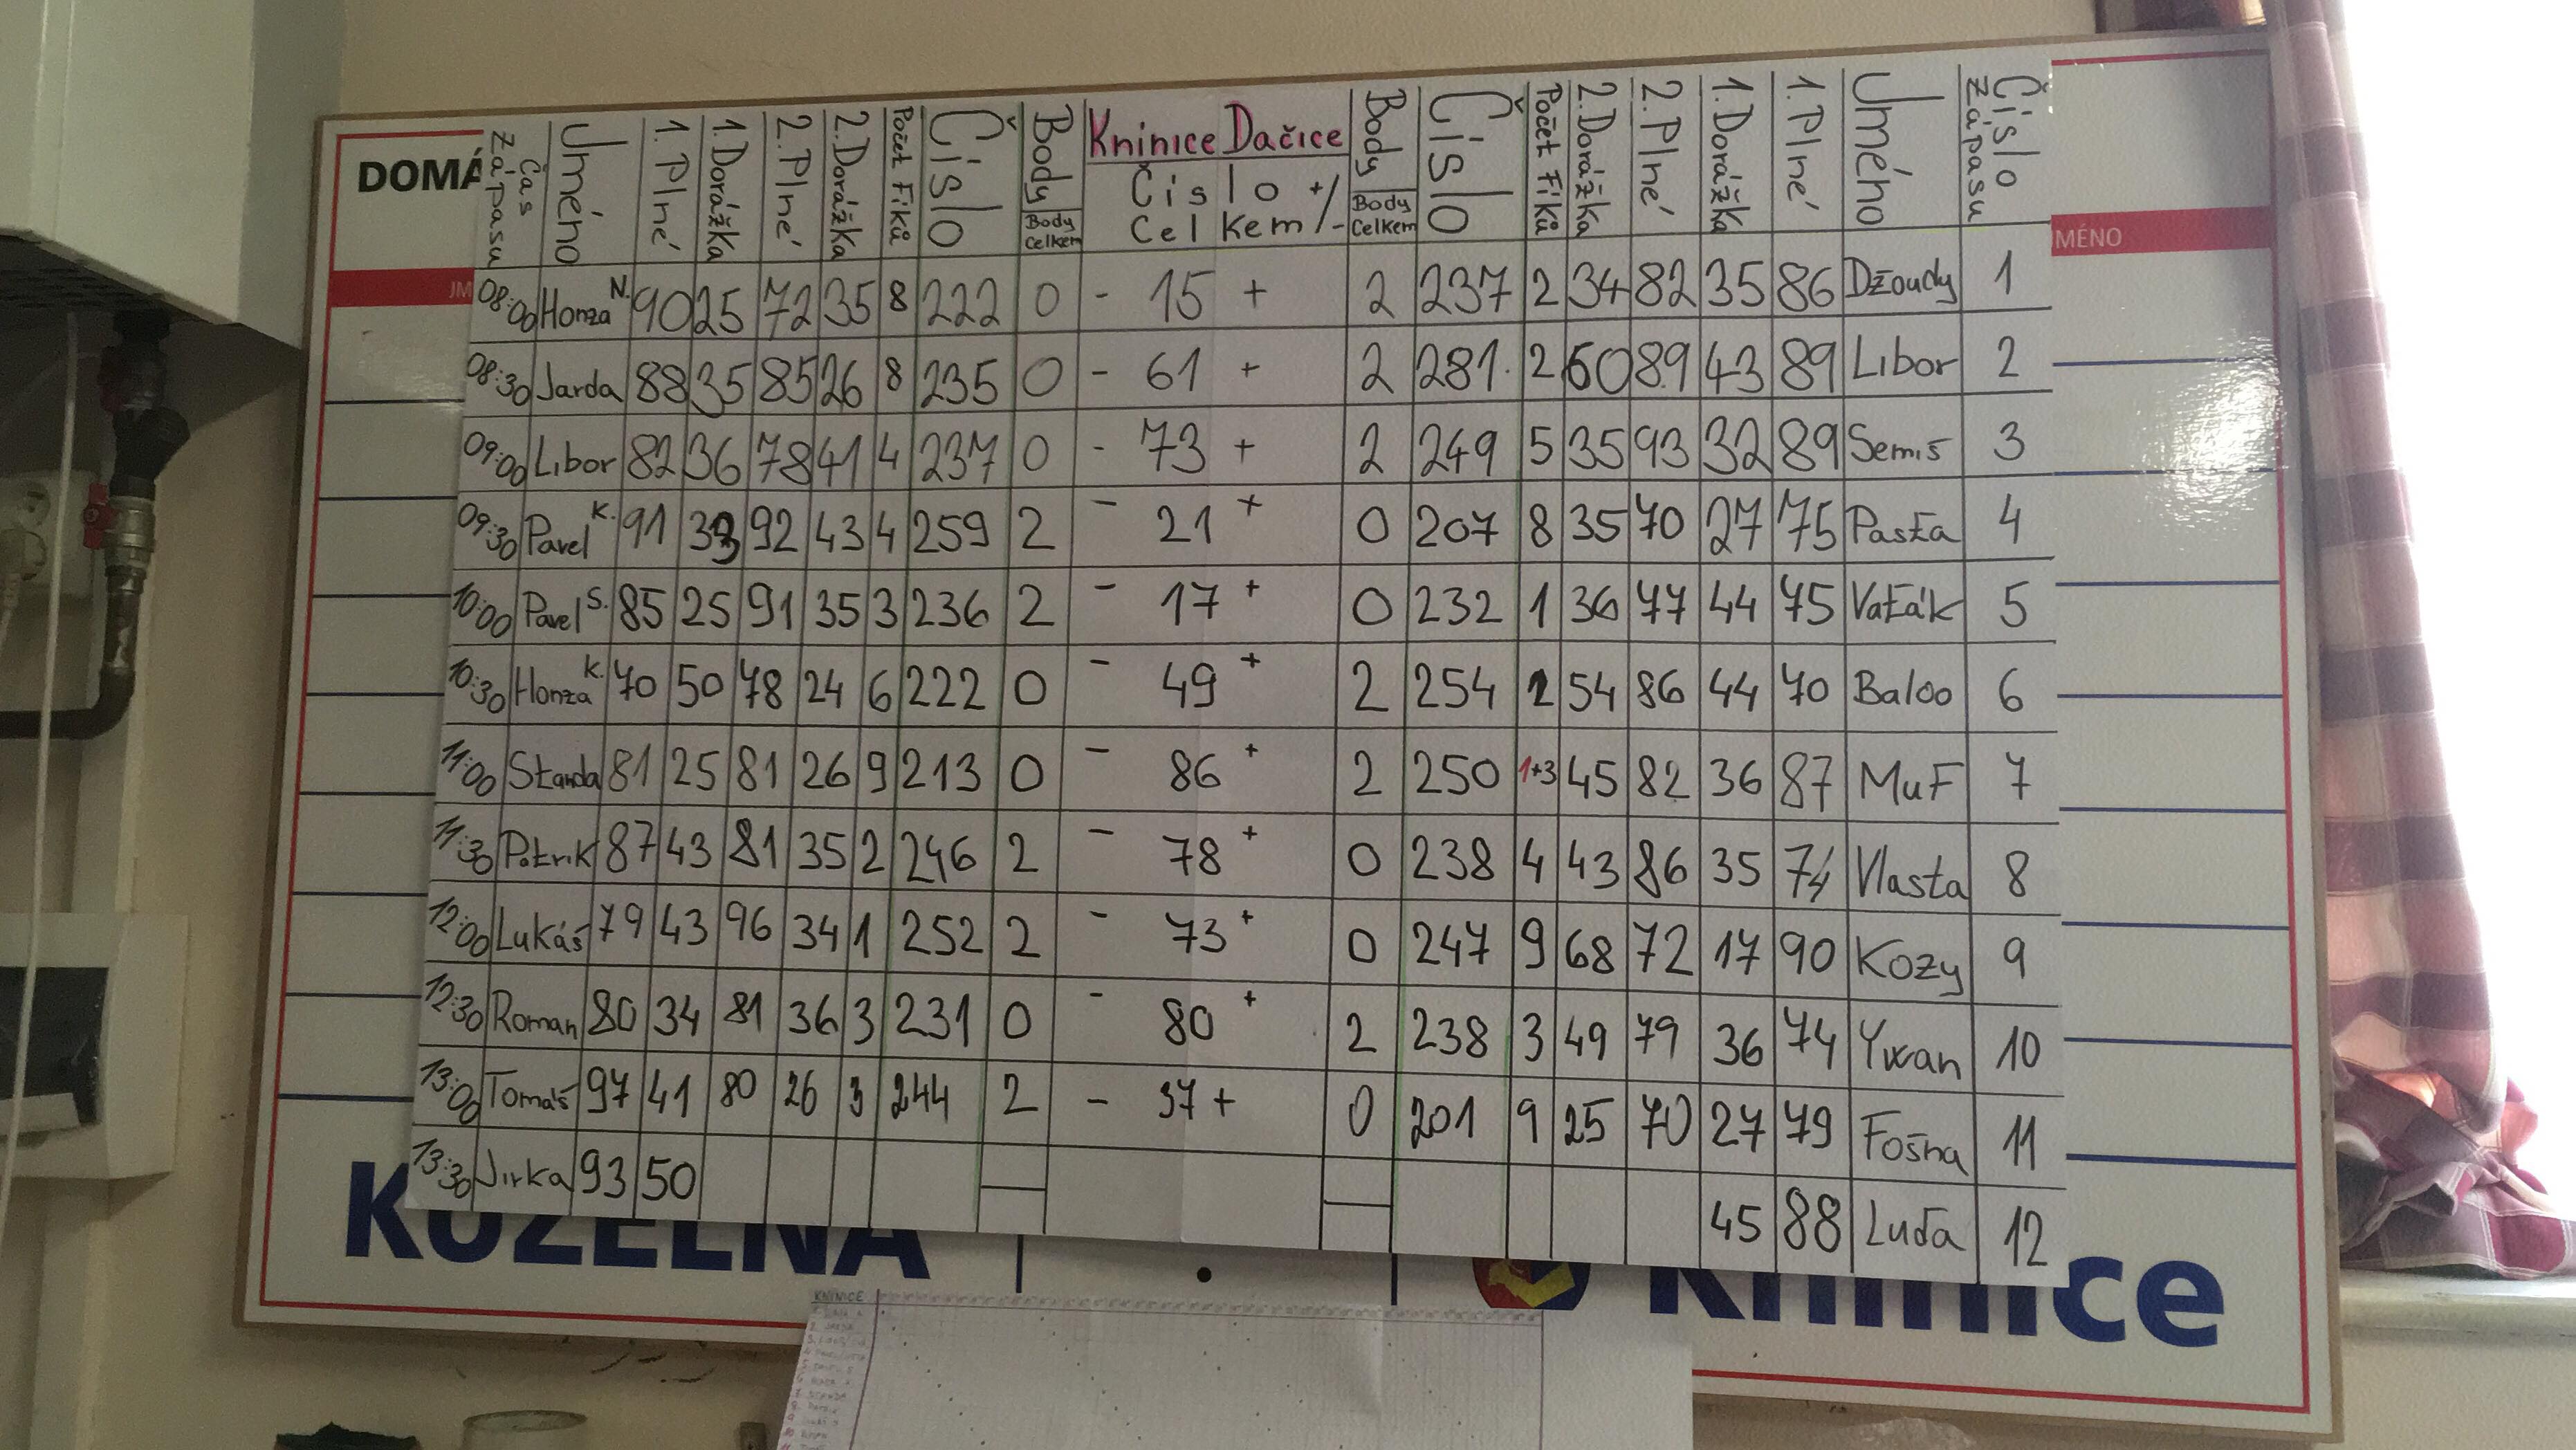 DOMÁ
JM
MÉNO
Čas Zápasu Jméno 1. Plné 1. Dorážka 2. Plné 2. Dorážka Počet Fíků Číslo Body Body Celkem Kninice Dačice Číslo Celkem +/- Body Body Celkem Číslo Počet Fíků 2. Dorážka 2. Plné 1. Dorážka 1. Plné Jméno Číslo Zápasu
08:00 Honza N. 90 25 72 35 8 222 0 - 15 + 2 237 2 34 82 35 86 Džoudy 1
08:30 Jarda 88 35 85 26 8 235 0 - 61 + 2 281 2 60 89 43 89 Libor 2
09:00 Libor 82 36 78 41 4 237 0 - 73 + 2 249 5 35 93 32 89 Semiš 3
09:30 Pavel K. 91 33 92 43 4 259 2 - 21 + 0 207 8 35 70 27 75 Pasťa 4
10:00 Pavel S. 85 25 91 35 3 236 2 - 17 + 0 232 1 36 77 44 75 Vaťák 5
10:30 Honza K. 70 50 78 24 6 222 0 - 49 + 2 254 2 54 86 44 70 Baloo 6
11:00 Standa 81 25 81 26 9 213 0 - 86 + 2 250 1+3 45 82 36 87 MuF 7
11:30 Patrik 87 43 81 35 2 246 2 - 78 + 0 238 4 43 86 35 74 Vlasta 8
12:00 Lukáš 79 43 96 34 1 252 2 - 73 + 0 247 9 68 72 17 90 Kozy 9
12:30 Roman 80 34 81 36 3 231 0 - 80 + 2 238 3 49 79 36 74 Ywan 10
13:00 Tomáš 97 41 80 26 3 244 2 - 37 + 0 201 9 25 70 27 79 Fošna 11
13:30 Jirka 93 50 45 88 Luďa 12
KUŽELNA Kninice
KNINICE